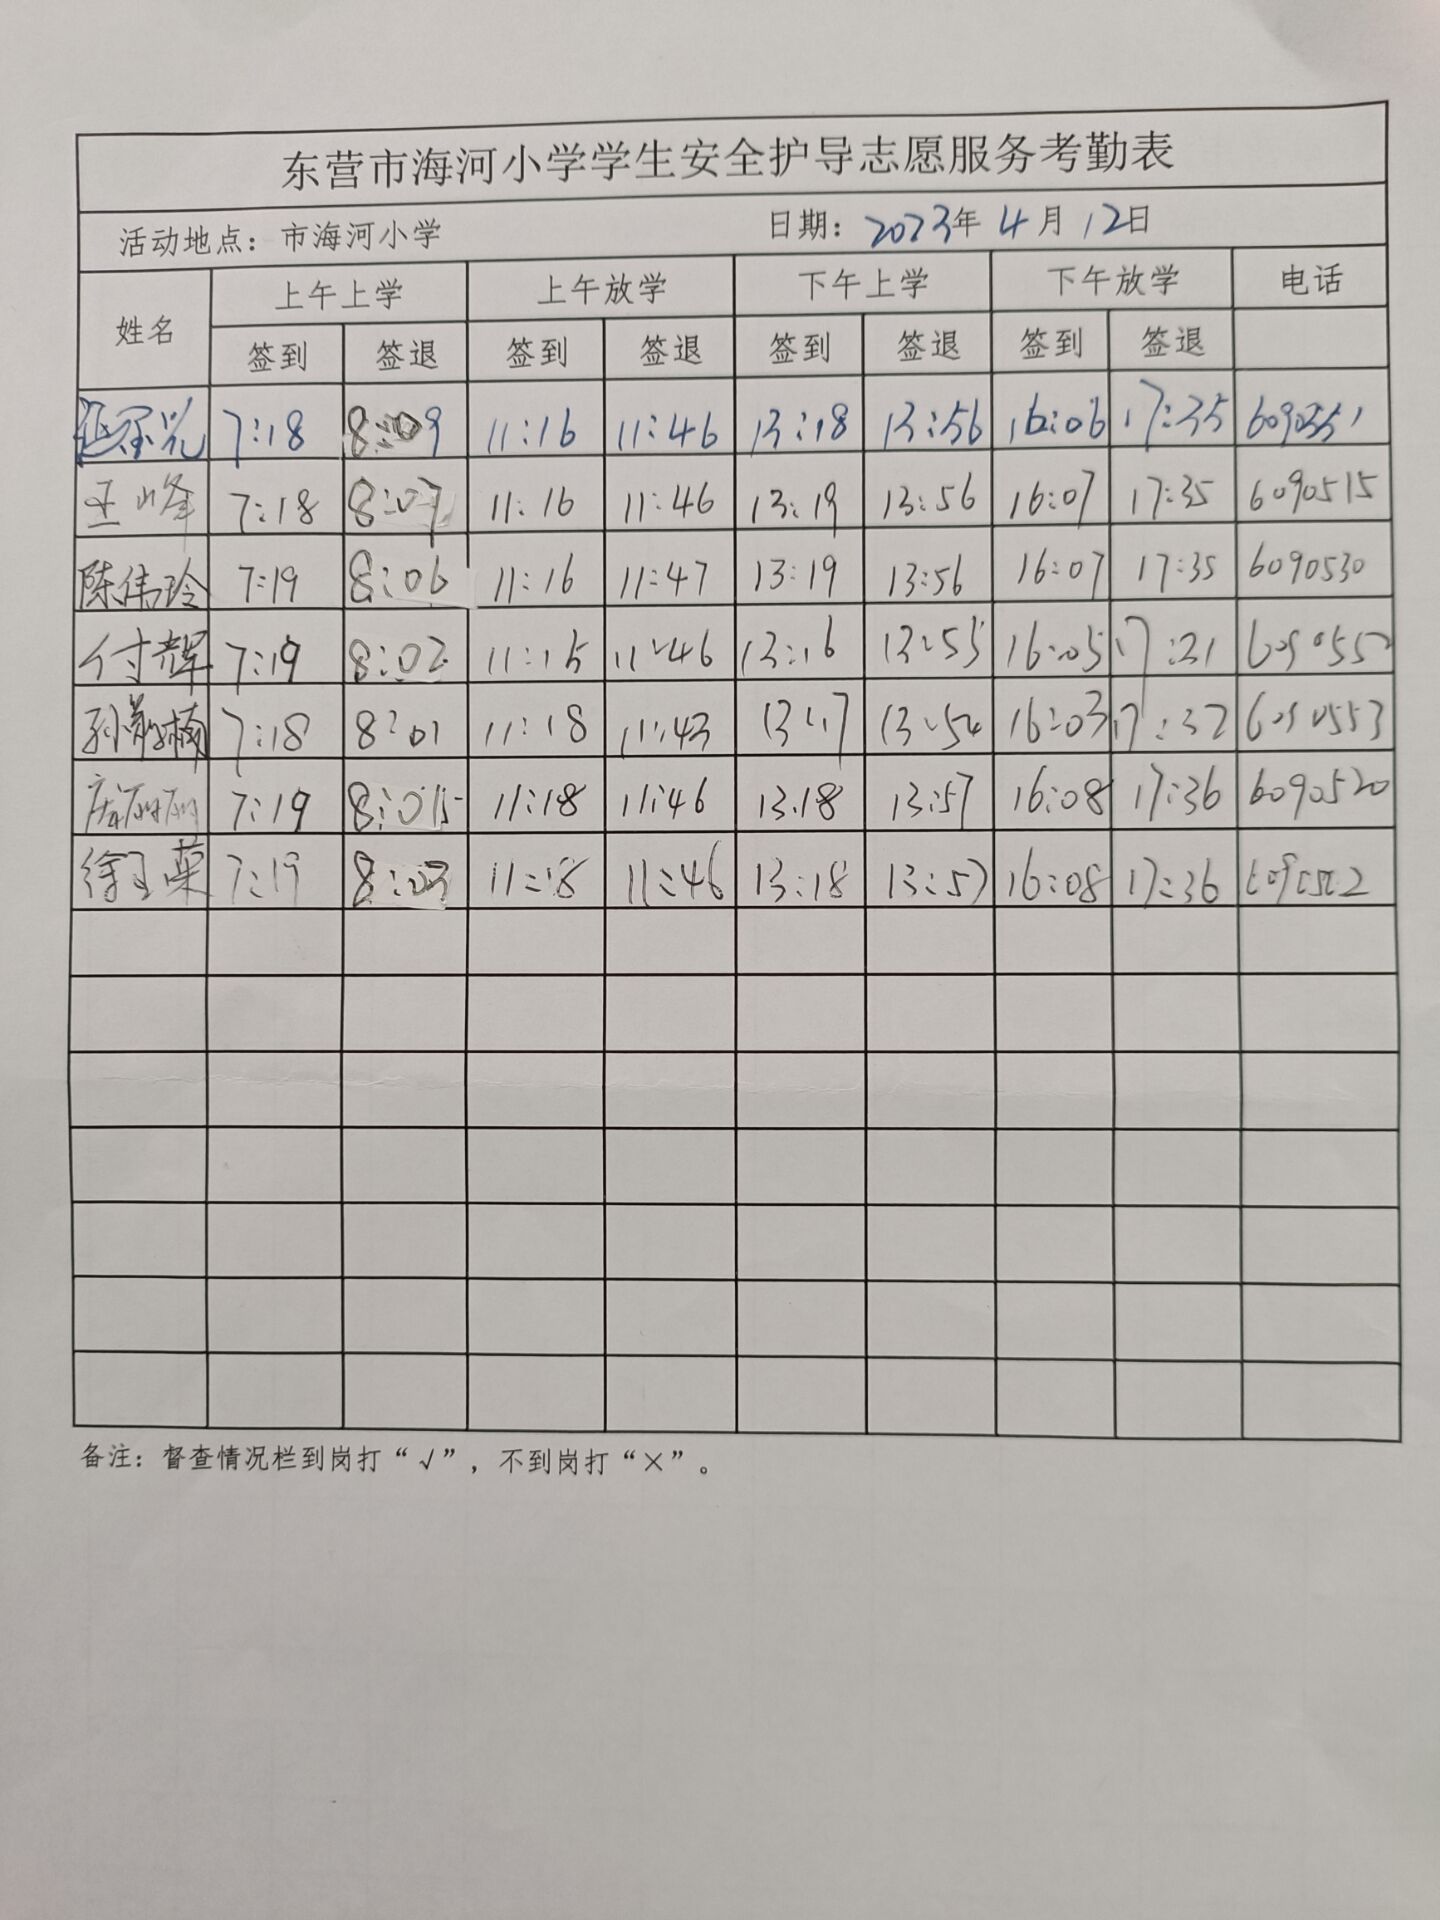 东营市海河小学学生安全护导志愿服务考勤表
活动地点：市海河小学 日期：2023年4月12日
姓名 上午上学 上午放学 下午上学 下午放学 电话
签到 签退 签到 签退 签到 签退 签到 签退
7:18 8:09 11:16 11:46 13:18 13:56 16:06 17:35 6090551
王峰 7:18 8:07 11:16 11:46 13:19 13:56 16:07 17:35 6090515
陈伟玲 7:19 8:06 11:16 11:47 13:19 13:56 16:07 17:35 6090530
付辉 7:19 8:02 11:15 11:46 13:16 13:55 16:05 17:31 6090552
孙 楠 7:18 8:01 11:18 11:43 13:17 13:54 16:03 17:32 6090553
7:19 8:05 11:18 11:46 13.18 13:57 16:08 17:36 6090520
徐玉荣 7:19 8:03 11:18 11:46 13:18 13:57 16:08 17:36
备注：督查情况栏到岗打“√”，不到岗打“×”。